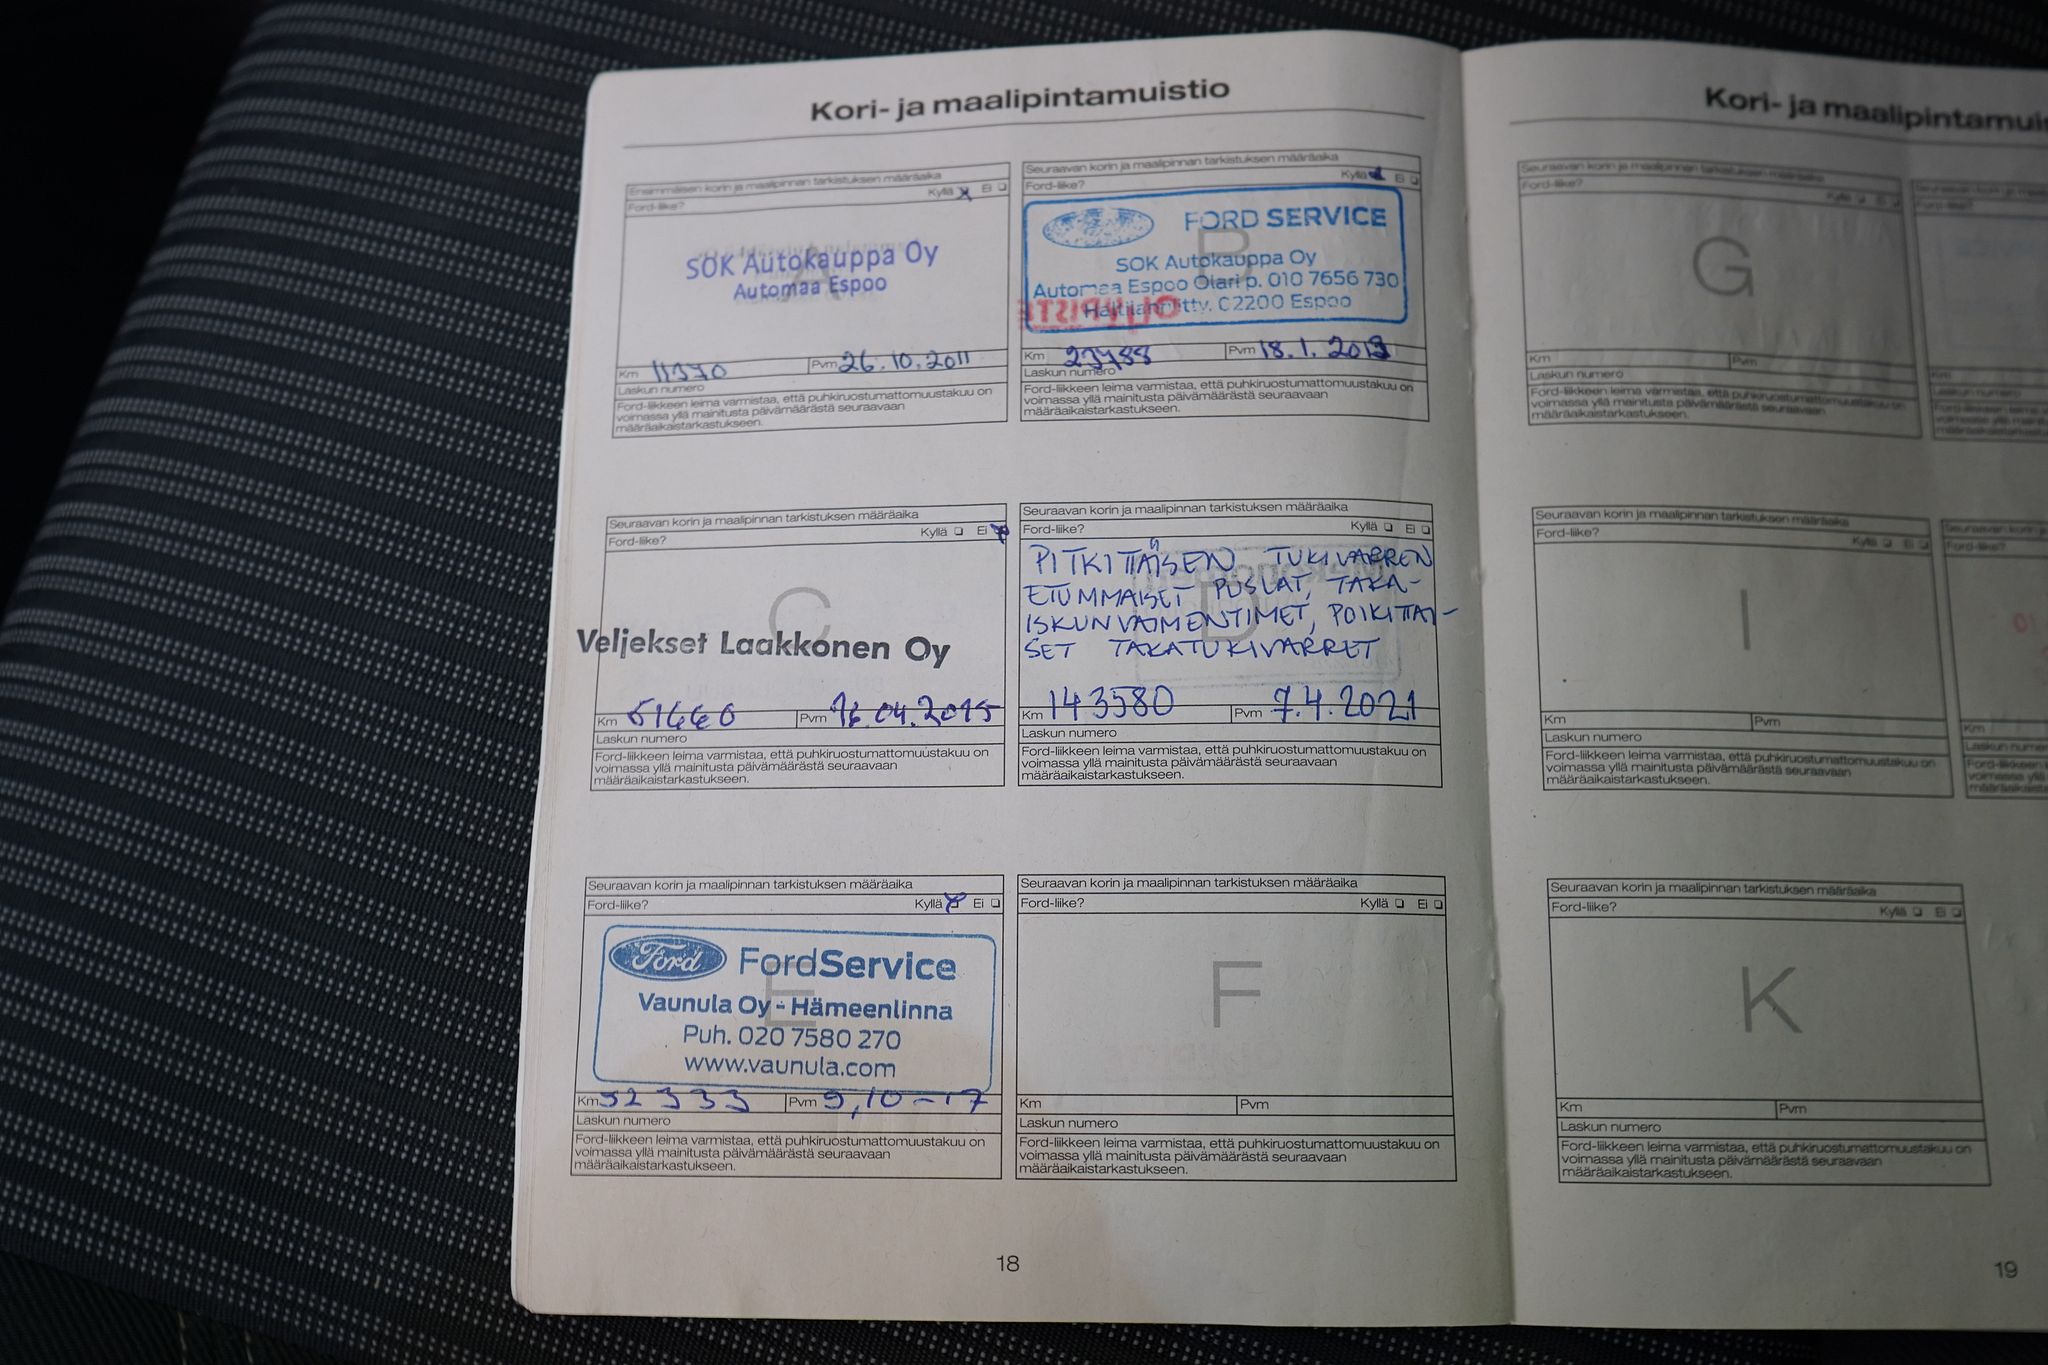 Kori- ja maalipintamuistio
Ensimmäisen korin ja maalipinnan tarkistuksen määräaika
Kyllä x Ei
Ford-liike?
A
SOK Autokauppa Oy
Automaa Espoo
Km 11370 Pvm 26.10.2011
Laskun numero
Ford-liikkeen leima varmistaa, että puhkiruostumattomuustakuu on
voimassa yllä mainitusta päivämäärästä seuraavaan
määräaikaistarkastukseen.
Seuraavan korin ja maalipinnan tarkistuksen määräaika
Kyllä Ei
Ford-liike?
B
FORD SERVICE
SOK Autokauppa Oy
Automaa Espoo Olari p. 010 7656 730
02200 Espoo
Km 23788 Pvm 18.1.2013
Laskun numero
Ford-liikkeen leima varmistaa, että puhkiruostumattomuustakuu on
voimassa yllä mainitusta päivämäärästä seuraavaan
määräaikaistarkastukseen.
Seuraavan korin ja maalipinnan tarkistuksen määräaika
Kyllä Ei x
Ford-liike?
C
Veljekset Laakkonen Oy
Km 51660 Pvm 16.04.2015
Laskun numero
Ford-liikkeen leima varmistaa, että puhkiruostumattomuustakuu on
voimassa yllä mainitusta päivämäärästä seuraavaan
määräaikaistarkastukseen.
Seuraavan korin ja maalipinnan tarkistuksen määräaika
Ford-liike? Kyllä Ei
D
PITKITTÄISEN TUKIVARREN
ETUMMAISET PUSLAT, TAKA-
ISKUNVAIMENTIMET, POIKITTAI-
SET TAKATUKIVARRET
Km 143580 Pvm 7.4.2021
Laskun numero
Ford-liikkeen leima varmistaa, että puhkiruostumattomuustakuu on
voimassa yllä mainitusta päivämäärästä seuraavaan
määräaikaistarkastukseen.
Seuraavan korin ja maalipinnan tarkistuksen määräaika
Ford-liike? Kyllä x Ei
E
Ford FordService
Vaunula Oy - Hämeenlinna
Puh. 020 7580 270
www.vaunula.com
Km 92333 Pvm 9,10-17
Laskun numero
Ford-liikkeen leima varmistaa, että puhkiruostumattomuustakuu on
voimassa yllä mainitusta päivämäärästä seuraavaan
määräaikaistarkastukseen.
Seuraavan korin ja maalipinnan tarkistuksen määräaika
Ford-liike? Kyllä Ei
F
Km Pvm
Laskun numero
Ford-liikkeen leima varmistaa, että puhkiruostumattomuustakuu on
voimassa yllä mainitusta päivämäärästä seuraavaan
määräaikaistarkastukseen.
18
Kori- ja maalipintamuis
Seuraavan korin ja maalipinnan tarkistuksen määräaika
Ford-liike?
Kyllä Ei
G
Km Pvm
Laskun numero
Ford-liikkeen leima varmistaa, että puhkiruostumattomuustakuu on
voimassa yllä mainitusta päivämäärästä seuraavaan
määräaikaistarkastukseen.
Seuraavan korin ja maalipinnan tarkistuksen määräaika
Ford-liike?
Kyllä Ei
I
Km Pvm
Laskun numero
Ford-liikkeen leima varmistaa, että puhkiruostumattomuustakuu on
voimassa yllä mainitusta päivämäärästä seuraavaan
määräaikaistarkastukseen.
Seuraavan korin ja maalipinnan tarkistuksen määräaika
Ford-liike? Kyllä Ei
K
Km Pvm
Laskun numero
Ford-liikkeen leima varmistaa, että puhkiruostumattomuustakuu on
voimassa yllä mainitusta päivämäärästä seuraavaan
määräaikaistarkastukseen.
19